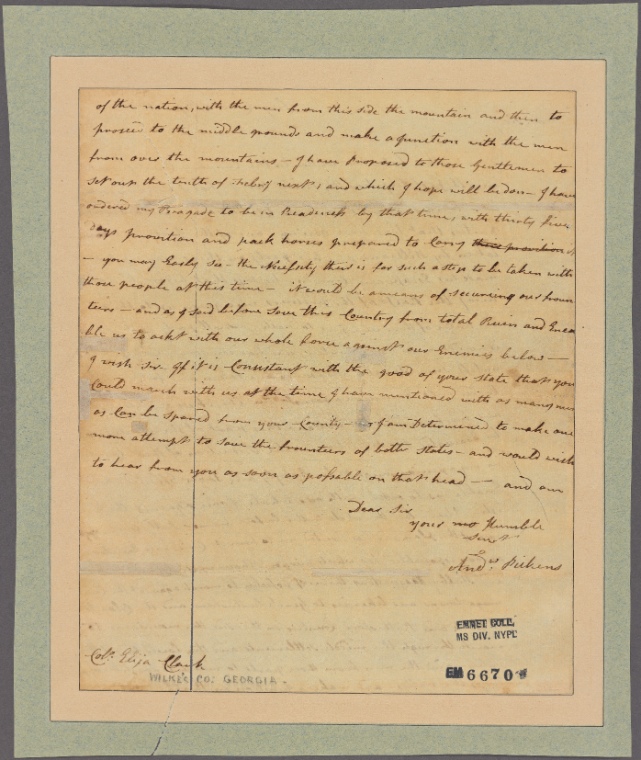 of the nation, with the men from this side the mountain and then to
proseed to the middle grounds and make a junction with the men
from over the mountains – I have Proposed to those Gentlemen to
set out the tenth of Febuy next, and which I hope will be don – I have
ordered my Bragade to be in Readiness by that time, with thirty five
days provition and pack horses prepared to Carry those provition
– you may Easly see – the Nessesity there is for such a step to be taken with
those people at this time – it would be a means of secureing our fron
teers – and as I said before save this Country from total Ruin and Enea
ble us to ackt with our whole force against our Enemies below –
I wish sir if it is Consistant with the good of your state that you
Could march with us at the time I have mentioned with as many men
as Can be spared from your County – I am Determined to make one
more attempt to save the frounteers of both States – and would wish
to hear from you as soon as possable on that head – and am
Dear Sir
your mo Humble
Servt
Andw Pickens
EMMET COLL.
MS DIV. NYPL
EM 6670
Coln Elija Clark
WILKES CO. GEORGIA.